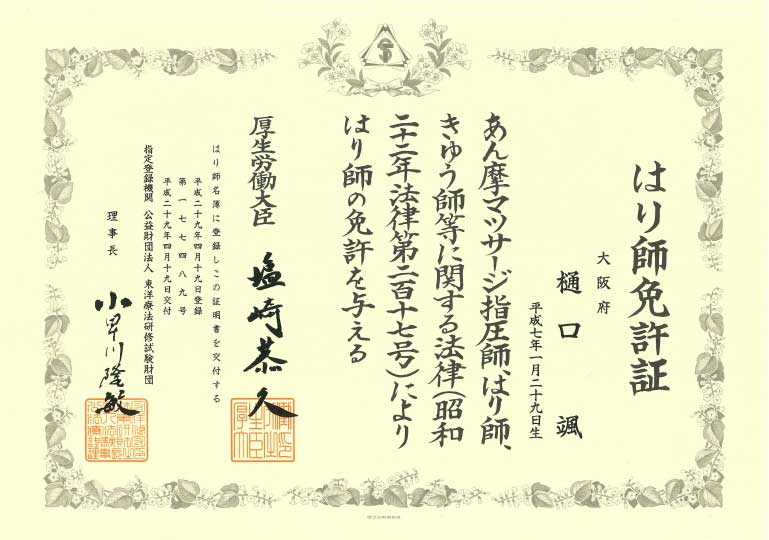 はり師免許証
大阪府
樋口 颯
平成七年一月二十九日生
あん摩マツサージ指圧師、はり師、
きゆう師等に関する法律(昭和
二十二年法律第二百十七号)により
はり師の免許を与える
厚生労働大臣 塩崎恭久
はり師名簿に登録しこの証明書を交付する
平成二十九年四月十九日登録
第一七七四八九号
平成二十九年四月十九日交付
指定登録機関 公益財団法人 東洋療法研修試験財団
理事長 小早川隆敏